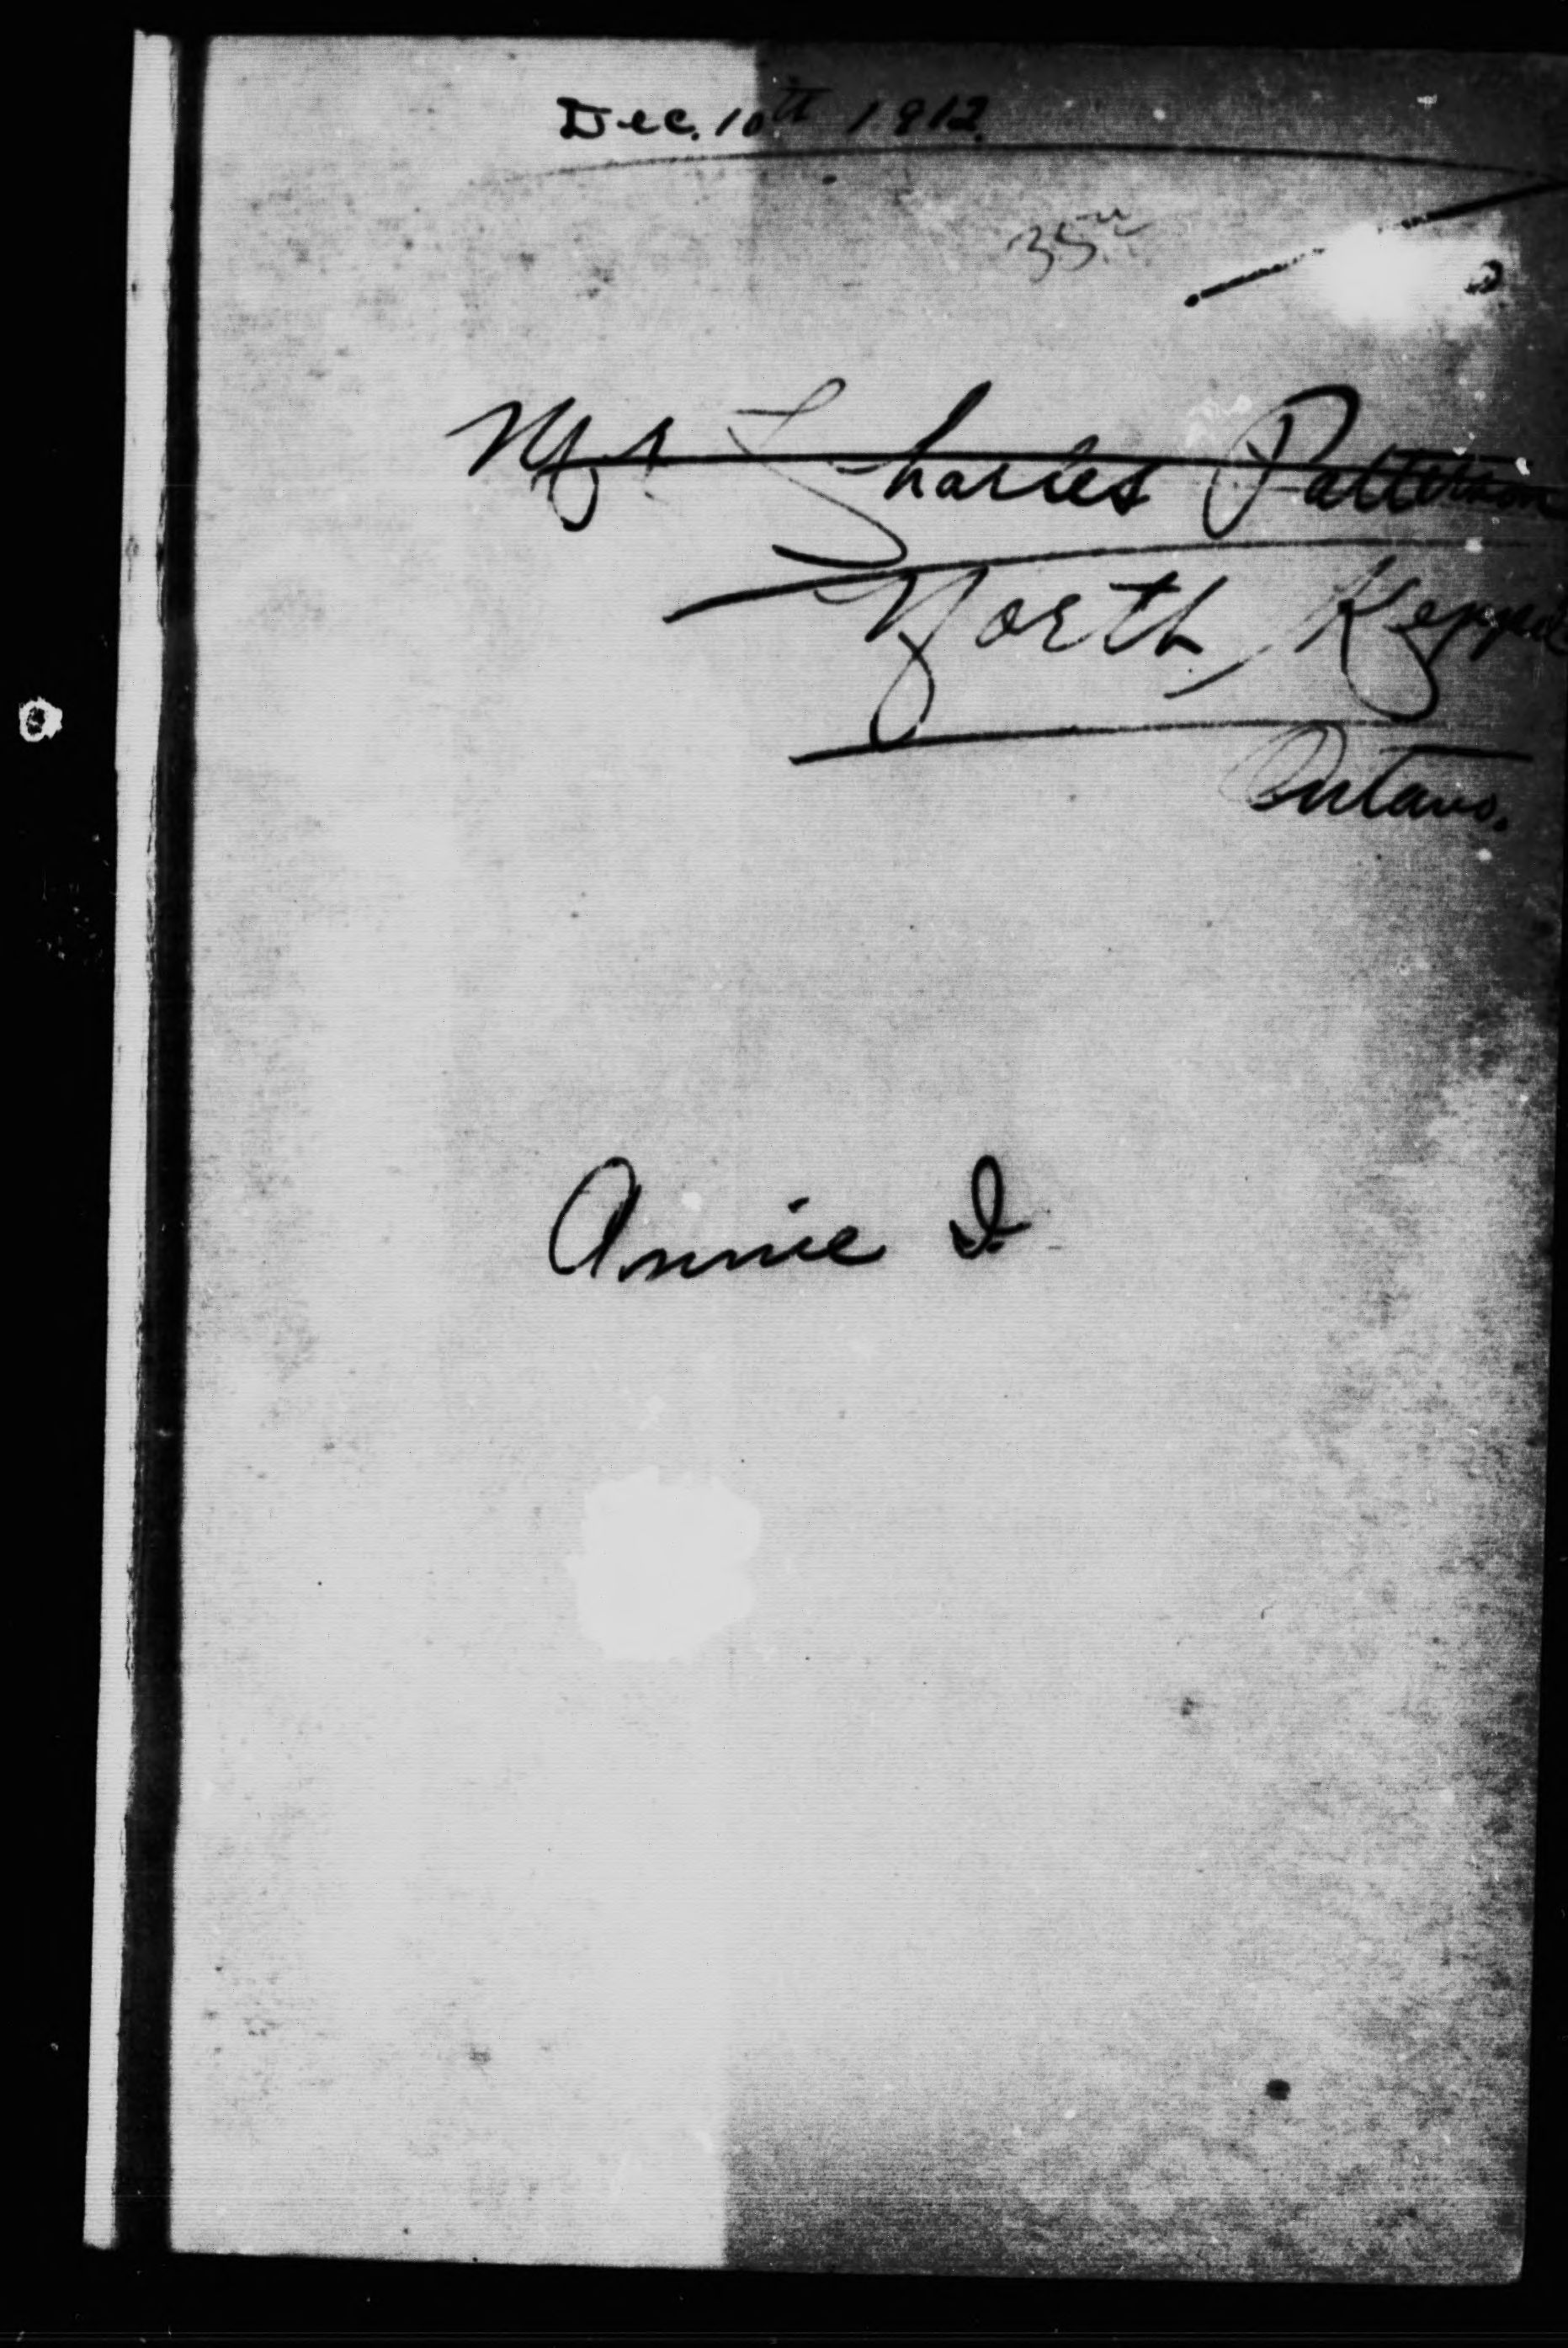 Dec. 10th 1912.
35
Mr Charles Patterson
North Keppel
Ontario.
Annie I.